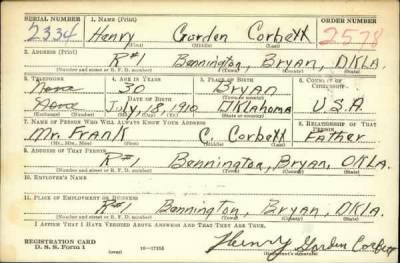 SERIAL NUMBER 1. NAME (Print) ORDER NUMBER
2334 Henry Gorden Corbett 2578
(First) (Middle) (Last)
2. ADDRESS (Print)
R#1 Bennington, Bryan, OKLA.
(Number and street or R. F. D. number) (Town) (County) (State)
3. TELEPHONE 4. AGE IN YEARS 5. PLACE OF BIRTH 6. COUNTRY OF CITIZENSHIP
None 30 Bryan
DATE OF BIRTH (Town or county)
None July, 18, 1910 OKlahoma U.S.A.
(Exchange) (Number) (Mo.) (Day) (Yr.) (State or country)
7. NAME OF PERSON WHO WILL ALWAYS KNOW YOUR ADDRESS 8. RELATIONSHIP OF THAT PERSON
Mr. Frank C. Corbett Father
(Mr., Mrs., Miss) (First) (Middle) (Last)
9. ADDRESS OF THAT PERSON
R#1 Bennington, Bryan, OKLA.
(Number and street or R. F. D. number) (Town) (County) (State)
10. EMPLOYER'S NAME
11. PLACE OF EMPLOYMENT OR BUSINESS
R#1 Bennington, Bryan, OKLA.
(Number and street or R. F. D. number) (Town) (County) (State)
I AFFIRM THAT I HAVE VERIFIED ABOVE ANSWERS AND THAT THEY ARE TRUE.
REGISTRATION CARD
D. S. S. Form 1 (over) 16—17105 Henry Gorden Corbett
(Registrant's signature)